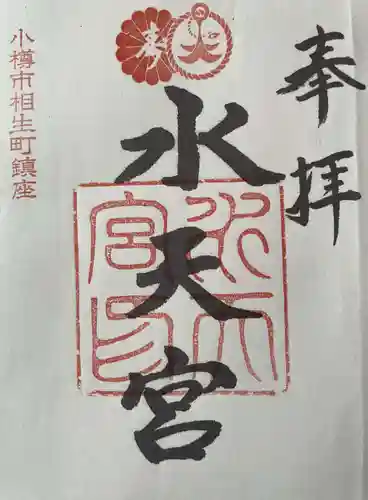 奉拝
水天宮
水天
宮印
小樽市相生町鎮座